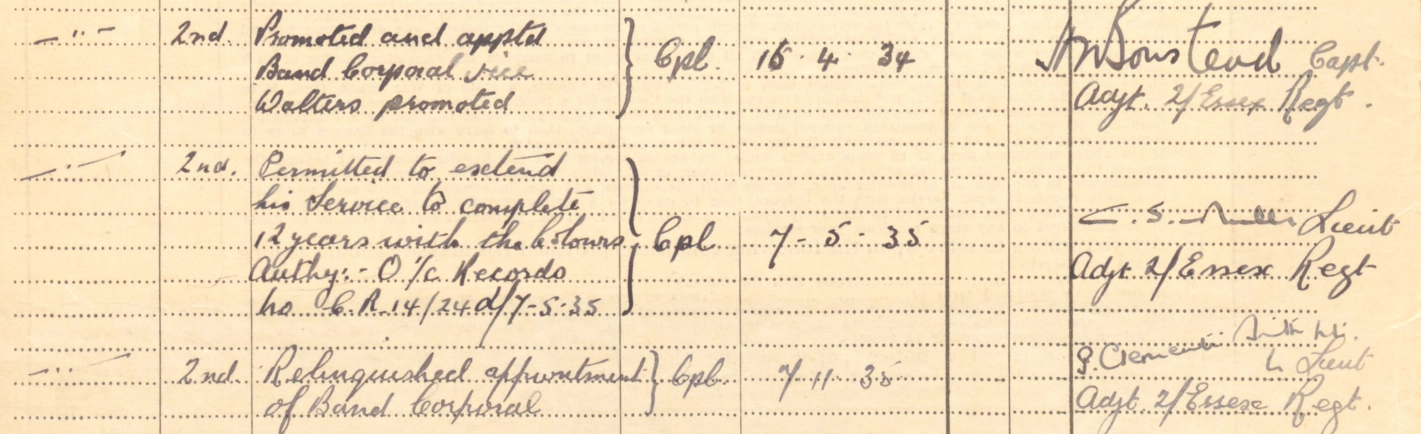 — " — 2nd. Promoted and apptd } Cpl. 15 . 4 . 34 Capt.
Band Corporal vice Adjt. 2/Essex Regt.
Walters promoted
2nd. Permitted to extend
his Service to complete
12 years with the Colours } Cpl 7 - 5 - 35 C. S. Lieut
Authy:- O i/c Records Adjt 2/Essex Regt
no C.R. 14/24 d/7-5-35
2nd. Relinquished appointment } Cpl. 7 . 11 . 35 Lieut
of Band Corporal Adjt. 2/Essex Regt.